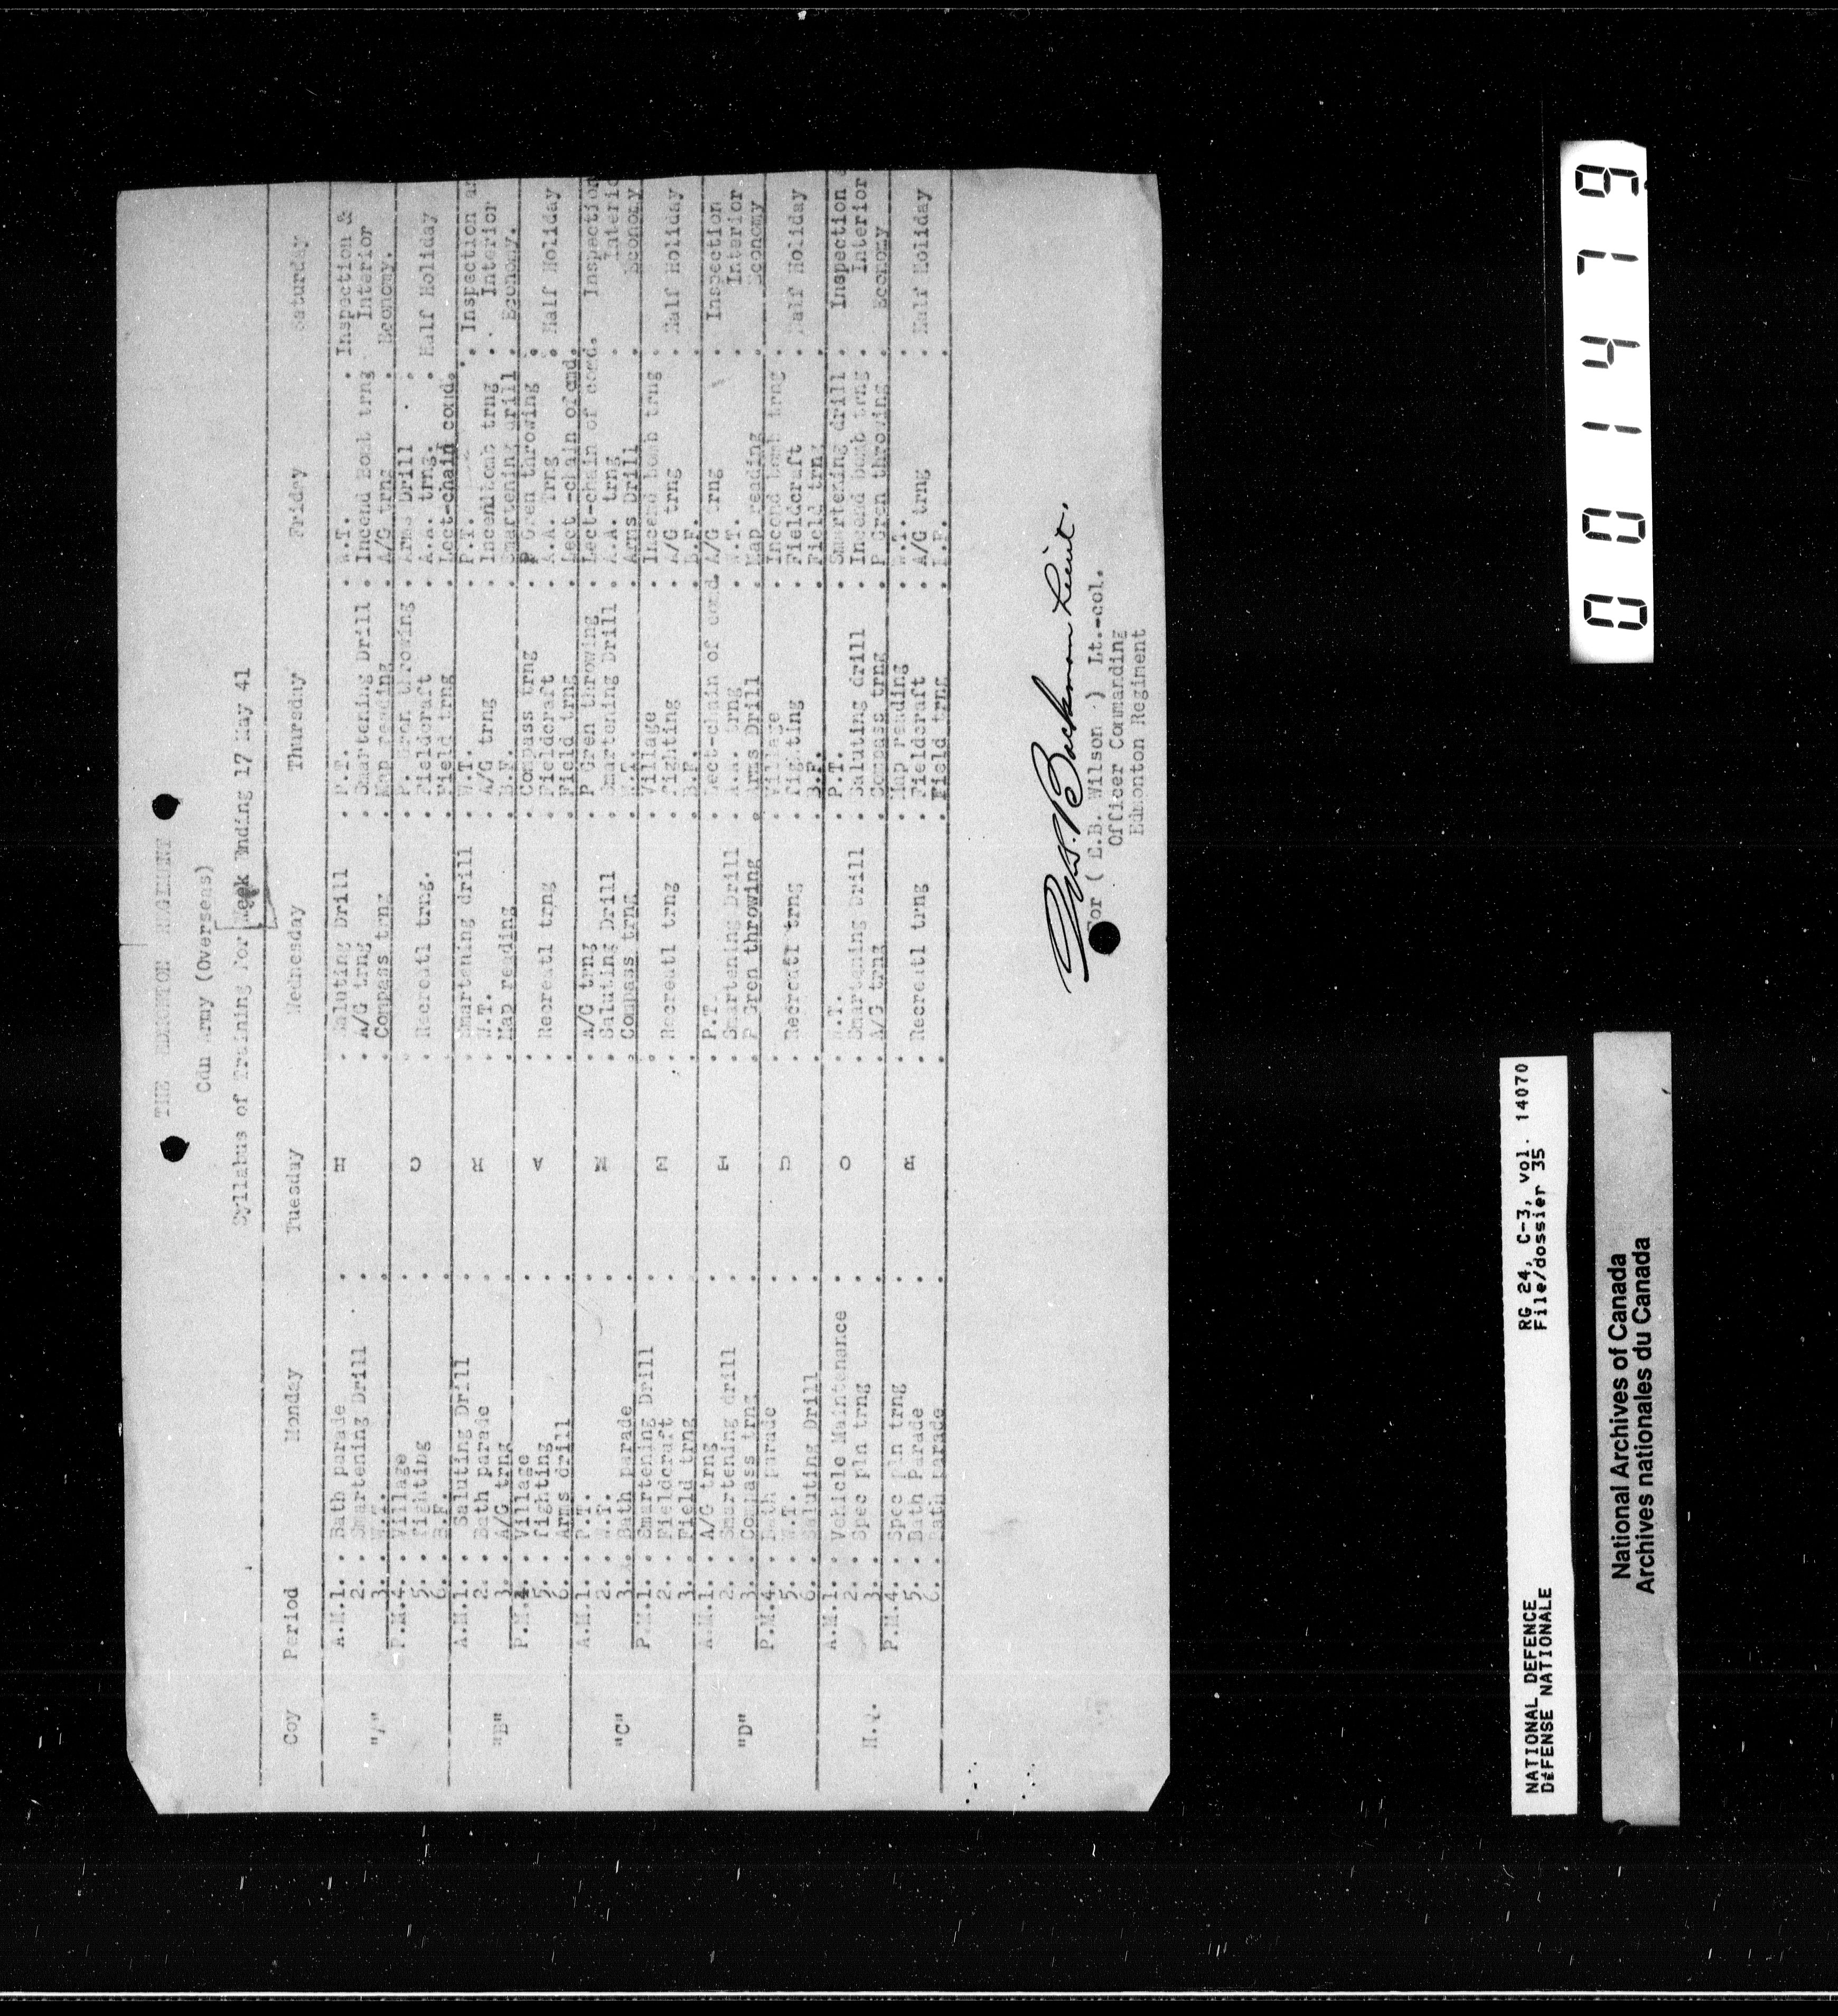 THE EDMONTON REGIMENT
Cdn Army (Overseas)
Syllabus of Training for Week Ending 17 May 41
Coy Period Monday Tuesday Wednesday Thursday Friday Saturday
A.M.1. . Bath parade . H . Saluting Drill . P.T. . W.T. . Inspection &
"A" 2. . Smartening Drill . . A/G trng . Smartening Drill . Incend Bomb trng . Interior
3. . W.T. . Compass trng . Map reading . A/G trng . Economy.
P.M.4. . Village . C . P. Gren throwing . Arms Drill .
5. . fighting . . Recreatl trng. . Fieldcraft . A.A. trng. . Half Holiday
6. . B.F. . Field trng . Lect-chain comd.
A.M.1. . Saluting Drill . R . Smartening drill . W.T. . P.T. . Inspection an
2. . Bath parade . . W.T. . A/G trng . Incendbomb trng . Interior
"B" 3. . A/G trng . . Map reading . B.F. . Smartening drill . Economy.
P.M.4. . Village . A . Compass trng . P Gren throwing .
5. . fighting . . Recreatl trng . Fieldcraft . A.A. Trng . Half Holiday
6. . Arms drill . . Field trng . Lect-chain of cmd.
A.M.1. . P.T. . M . A/G trng . P Gren throwing . Lect-chain of comd. Inspection
2. . W.T. . . Saluting Drill . Smartening Drill . A.A. trng . Interio
"C" 3. . Bath parade . . Compass trng . W.T. . Arms Drill . Economy
P.M.1. . Smartening Drill . . Village . Incend bomb trng .
2. . Fieldcraft . . Recreatl trng . fighting . A/G trng . Half Holiday
3. . Field trng . B.F. . B.F.
A.M.1. . A/G trng . . P.T. . Lect-chain of comd. A/G trng . Inspection
2. . Smartening drill . . Smartening Drill . A.A. trng . W.T. . Interior
"D" 3. . Compass trng . P Gren throwing . Arms Drill . Map reading . Economy
P.M.4. . Bath parade . . Village . Incend bomb trng .
5. . W.T. . . Recreatl trng . fighting . Fieldcraft . Half Holiday
6. . Saluting Drill . B.F. . Field trng .
A.M.1. . Vehicle Maintenance . O . W.T. . P.T. . Smartening drill . Inspection
2. . Spec Pln trng . . Smartening Drill . Saluting drill . Incend bomb trng . Interior
H.Q. 3. . . A/G trng . Compass trng . P Gren throwing . Economy
P.M.4. . Spec Pln trng . R . Map reading . W.T. .
5. . Bath Parade . . Recreatl trng . Fieldcraft . A/G trng . Half Holiday
6. . Bath parade . . Field trng . B.F. .
Backman Lieut.
For ( E.B. Wilson ) Lt.-col.
Officer Commanding
Edmonton Regiment
NATIONAL DEFENCE RG 24, C-3, vol. 14070
DéFENSE NATIONALE File/dossier 35
National Archives of Canada
Archives nationales du Canada
001479